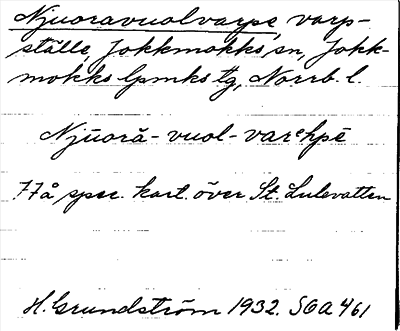 Njuoravuolvarpe varp-
ställe, Jokkmokks sn, Jokk-
mokks lpmks tg, Norrb. l.
Njūorå̄ - vuol - varehpē
77å spec. kart. över St. Lulevatten
H. Grundström 1932. SOA 461